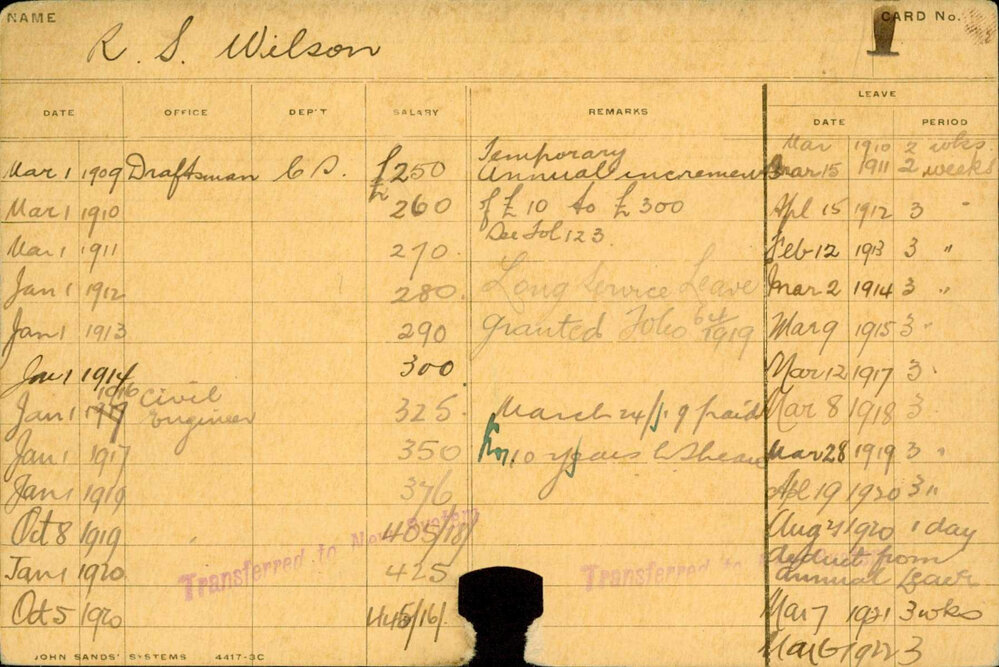 NAME
CARD No.
R. S. Wilson
LEAVE
DATE OFFICE DEP'T SALARY REMARKS DATE PERIOD
Mar 1910 2 wks.
Mar 1 1909 Draftsman C S. £250 Temporary Annual increments Mar 15 1911 2 weeks
Mar 1 1910 £260 of £10 to £300 Apl 15 1912 3 "
See Fol 123
Mar 1 1911 270. Feb 12 1913 3 "
Jan 1 1912 280. Long Service Leave Mar 2 1914 3 "
Jan 1 1913 290 Granted Folio 64 1919 Mar 9 1915 3 "
Jan 1 1914 300. Mar 12 1917 3 "
Jan 1 1916 Civil Engineer 325. March 24/19 paid Mar 8 1918 3 "
Jan 1 1917 350 for 10 years Mar 28 1919 3 "
Jan 1 1919 376 Apl 19 1920 3 "
Oct 8 1919 405/18/ Aug 1920 1 day
deduct from
Jan 1 1920 425 annual leave
Transferred to New System
Transferred to
Oct 5 1920 445/16/ Mar 7 1921 3 wks
Mar 6 1922 3
JOHN SANDS' SYSTEMS 4417-3C